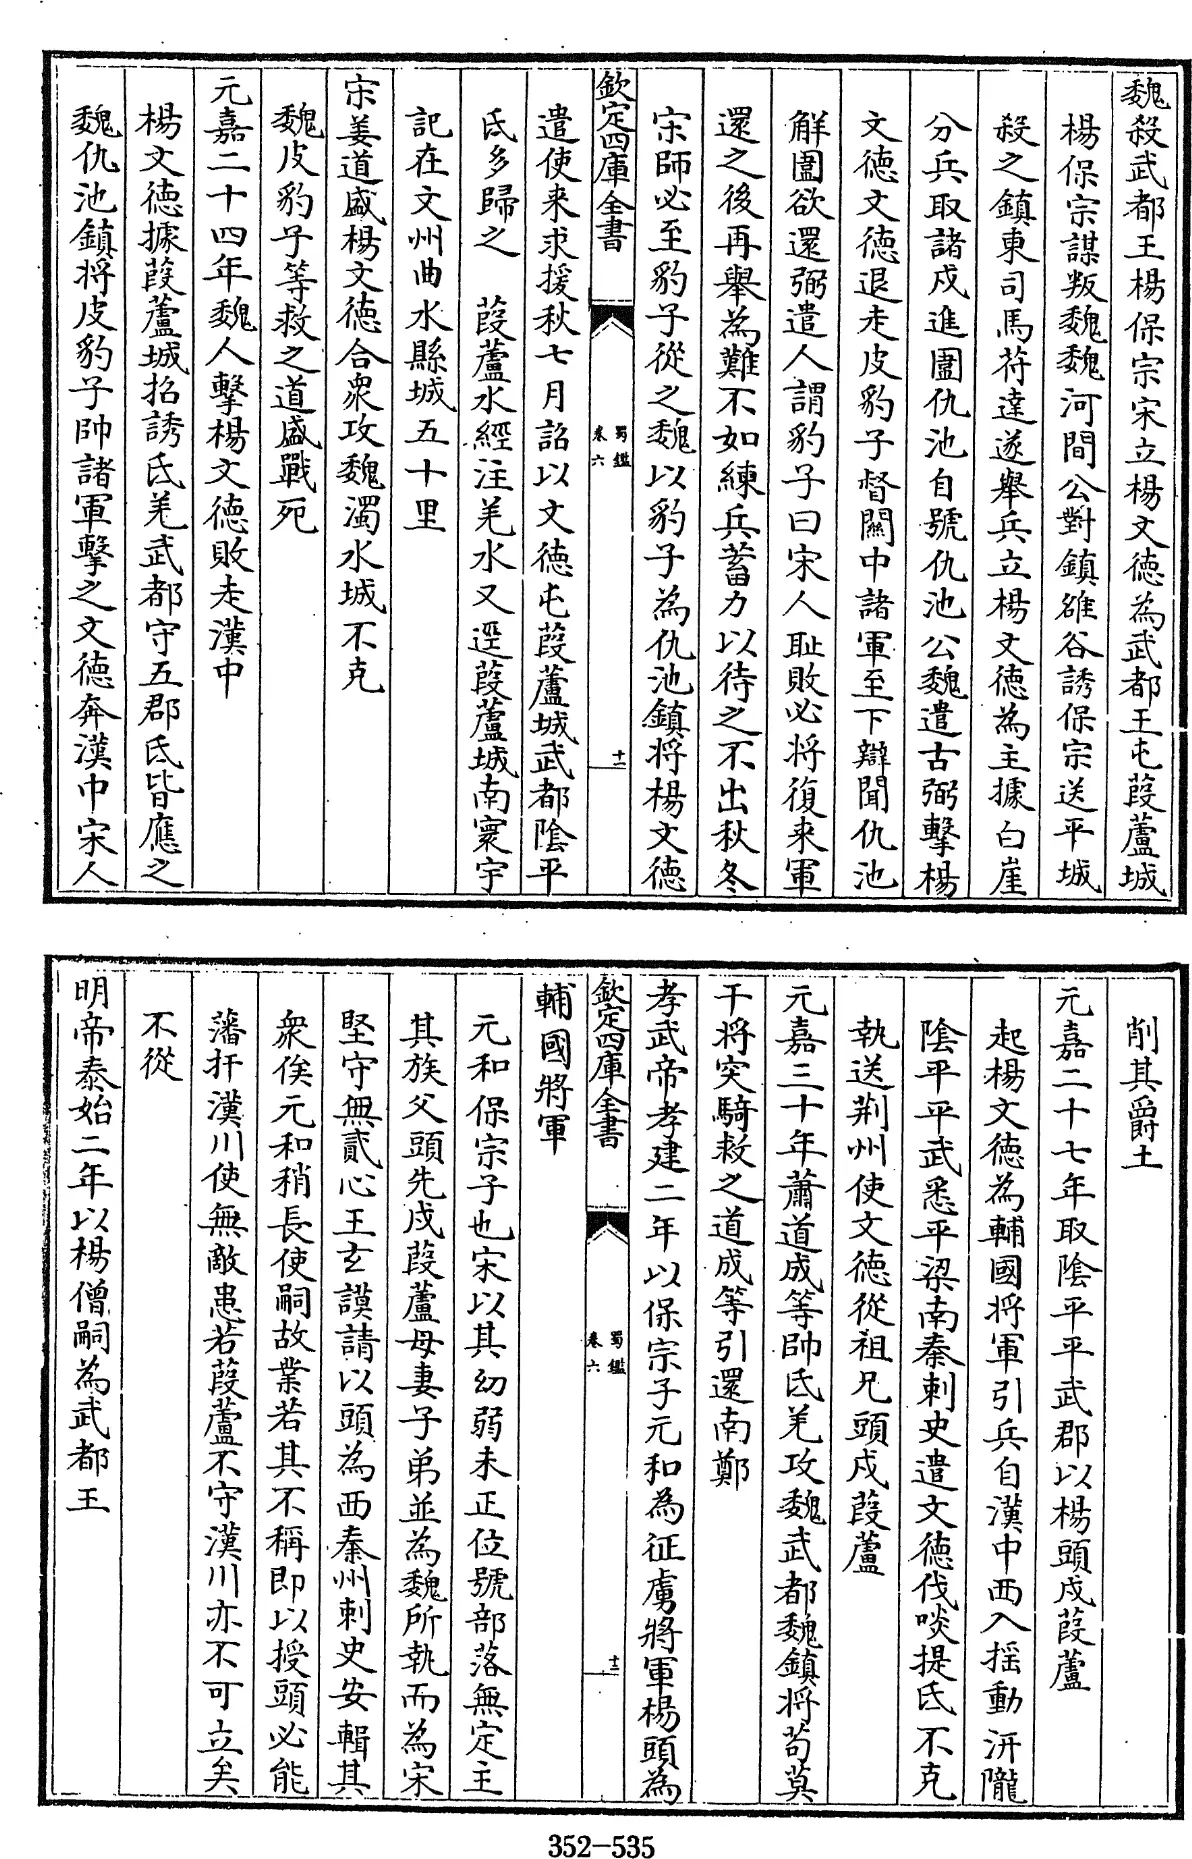 魏殺武都王楊保宗宋立楊文德為武都王屯葭蘆城
楊保宗謀叛魏魏河間公對鎮雒谷誘保宗送平城
殺之鎮東司馬苻達遂舉兵立楊文德為主據白崖
分兵取諸戍進圍仇池自號仇池公魏遣古弼擊楊
文德文德退走皮豹子督關中諸軍至下辯聞仇池
解圍欲還弼遣人謂豹子曰宋人耻敗必將復来軍
還之後再舉為難不如練兵蓄力以待之不出秋冬
宋師必至豹子從之魏以豹子為仇池鎮將楊文德
欽定四庫全書
蜀鑑
卷六
十一
遣使来求援秋七月詔以文德屯葭蘆城武都隂平
氐多歸之 葭蘆水經注羌水又逕葭蘆城南寰宇
記在文州曲水縣城五十里
宋姜道盛楊文德合衆攻魏濁水城不克
魏皮豹子等救之道盛戰死
元嘉二十四年魏人擊楊文德敗走漢中
楊文德據葭蘆城招誘氐羌武都守五郡氐皆應之
魏仇池鎮將皮豹子帥諸軍擊之文德奔漢中宋人
削其爵土
元嘉二十七年取隂平平武郡以楊頭戍葭蘆
起楊文德為輔國將軍引兵自漢中西入揺動汧隴
隂平平武悉平梁南秦刺史遣文德伐啖提氐不克
執送荆州使文德從祖兄頭戍葭蘆
元嘉三十年蕭道成等帥氐羌攻魏武都魏鎮將苟莫
干將突騎救之道成等引還南鄭
孝武帝孝建二年以保宗子元和為征虜將軍楊頭為
欽定四庫全書
蜀鑑
卷六
十二
輔國將軍
元和保宗子也宋以其幼弱未正位號部落無定主
其族父頭先戍葭蘆母妻子弟並為魏所執而為宋
堅守無貳心王玄謨請以頭為西秦州刺史安輯其
衆俟元和稍長使嗣故業若其不稱即以授頭必能
藩扞漢川使無敵患若葭蘆不守漢川亦不可立矣
不從
明帝泰始二年以楊僧嗣為武都王
352-535